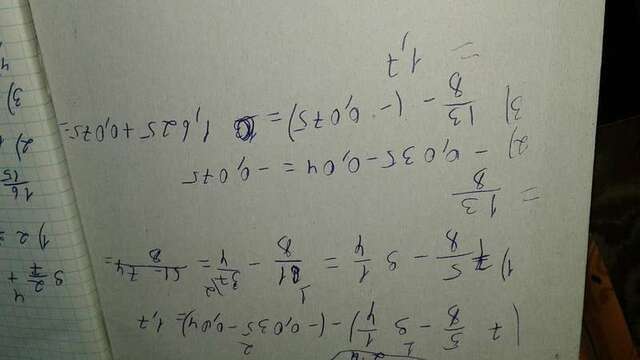 (7 5/8 - 9 1/4) - (-0,035-0,04) = 1,7
1) 7 5/8 - 9 1/4 = 61/8 - 37/4 = 61 - 74/8 =
= 13/8
2) -0,035-0,04 = -0,075
3) 13/8 - (-0,075) = 1,625+0,075=
= 1,7
9 2/7 +
1) 2
16/15
2)
3)
4